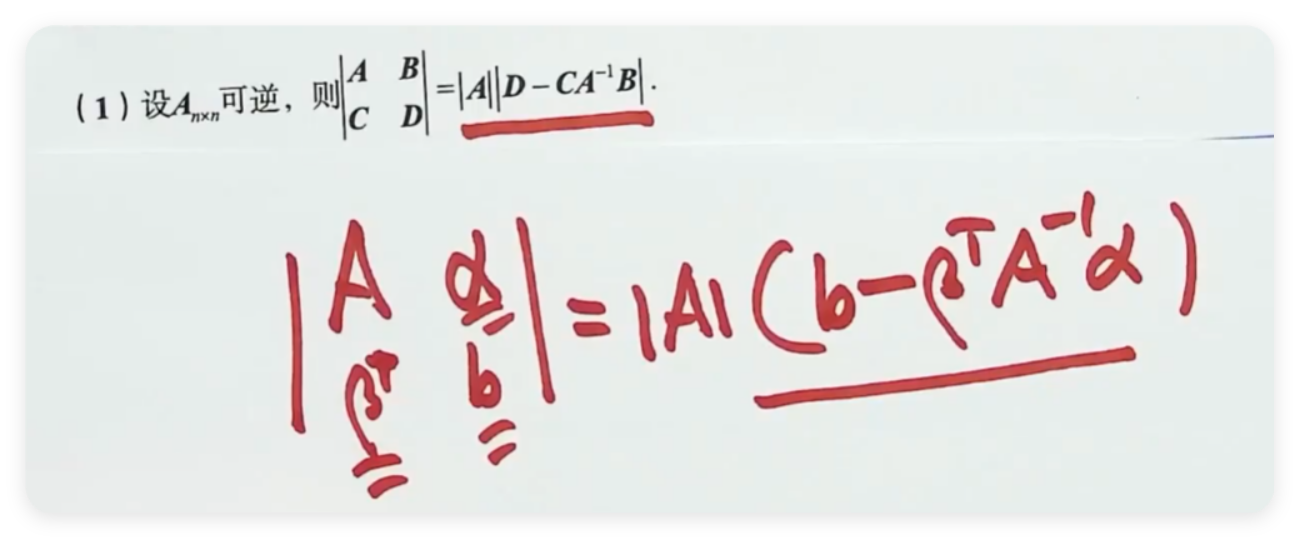 (1)设A_{n×n}可逆，则|A B; C D|=|A||D−CA⁻¹B|.
|A α; βᵀ b|=|A|(b−βᵀA⁻¹α)